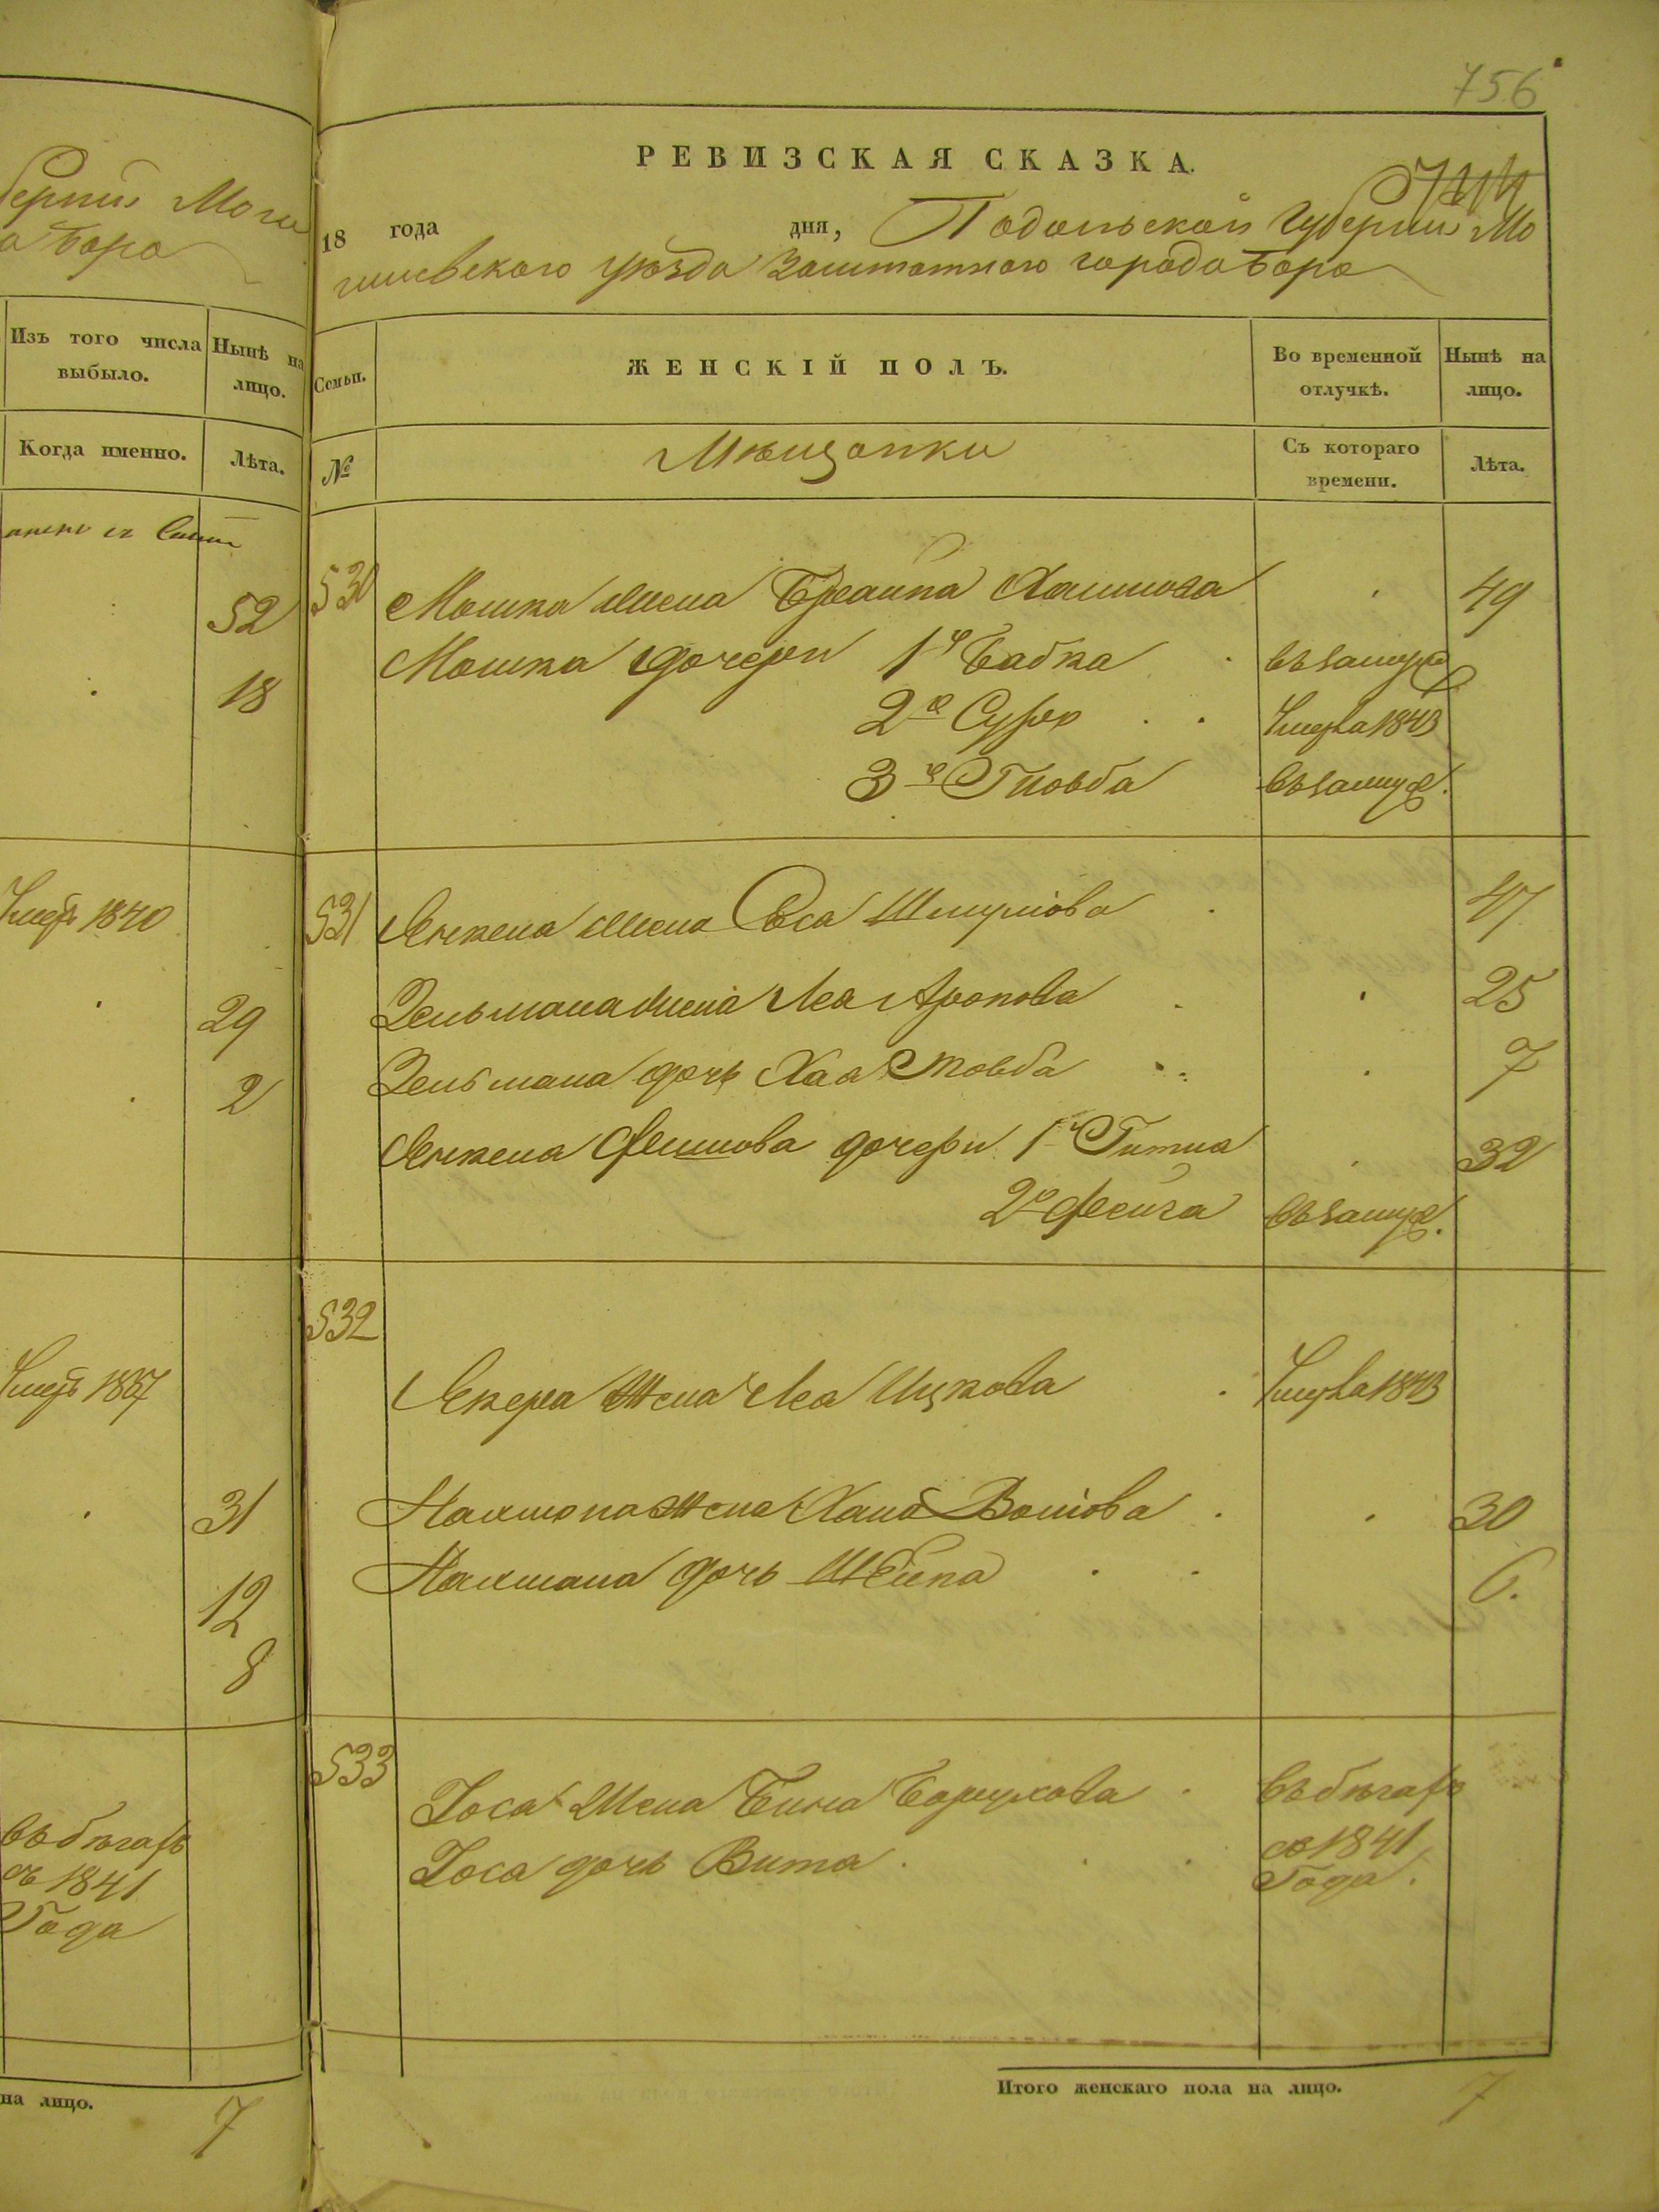 756
РЕВИЗСКАЯ СКАЗКА.
18 года дня, Подольской Губерніи Мо
гилевского уѣзда Заштатного города Бара
берніи Моги
а Бара
Изъ того числа выбыло.
Нынѣ на лицо.
Когда именно.
Лѣта.
52
18
Умеръ 1840
29
2
Умеръ 1837
31
12
8
Въ бѣгахъ
съ 1841
Года
на лицо.
7
Семьи.
ЖЕНСКІЙ ПОЛЪ.
Во временной отлучкѣ.
Нынѣ на лицо.
№
Мѣщанки
Съ котораго времени.
Лѣта.
530 Мошка жена Браина Хаимова 49
Мошка дочери 1я Бабка въ замуж
2я Сура Умерла 1843
3я Товба въ замуж.
531 Янкеля жена Роса Шмулiова 47
Зельмана жена Лея Аронова 25
Зельмана дочь Хая Товба 7
Янкеля дочери 1я Гитля 32
2я Фейга въ замуж.
532
жена Лея Ицкова Умерла 1843
Нахмана жена Хана Волiова 30
Нахмана дочь Шейна 6.
533
Іоса жена Бина Борухова Въ бѣгахъ
Іоса дочь Вита съ 1841
Года.
Итого женскаго пола на лицо. 7